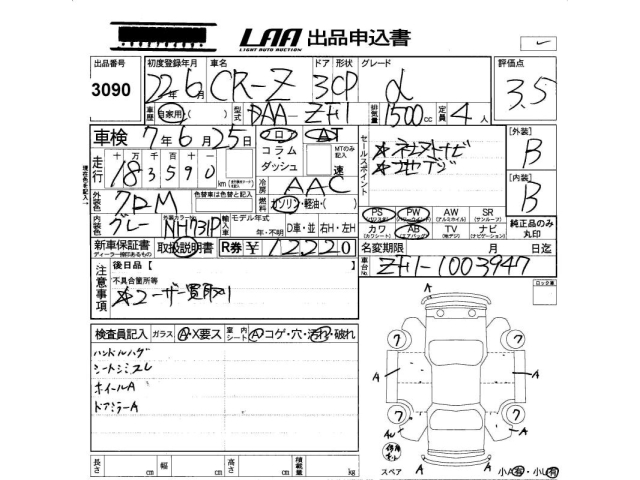 LAA 出品申込書
LIGHT AUTO AUCTION
出品番号 初度登録年月 車名 ドア 形状 グレード 評価点
3090 22年6月 CR-Z 3 CP α 3.5
車歴 自家用・( ) 型式 DAA-ZF1 排気量 1500cc 定員 4人
車検 7年6月25日 フロア AT セールスポイント [外装]
コラム・ダッシュ MTのみ記入 速 B
走行 十万千百十
183590 km
冷房 AAC [内装]
外装色 クロM 色替車は色替と記入 燃料 ガソリン・軽油・( ) B
内装色 グレー 外装カラーNo. NH731P 輸入車 モデル年式 年・不明 D車・並 右H・左H
PS PW AW SR
(パワステ) (パワーウインド) (アルミホイル) (サンルーフ)
カワ AB TV ナビ
(カワシート) (エアバッグ) (地デジ) (ナビゲーション)
純正品のみ丸印
新車保証書 取扱説明書 R券 ¥12220 名変期限 月 日迄
ディーラー捺印あるもの
車台No. ZF1-1003947
ロック車
注意事項 後日品【 】
不具合箇所等
☆ユーザー買取り
検査員記入 ガラス A・X要ス 室内シート A コゲ・穴・汚れ・破れ
ハンドルハゲ
シートシミスレ
ホイールA
ドアミラーA
A
7 7
A A
7 7
AU A
A A
スペア 小A有・小U有
長さ cm 幅 cm 高さ cm 積載量 kg